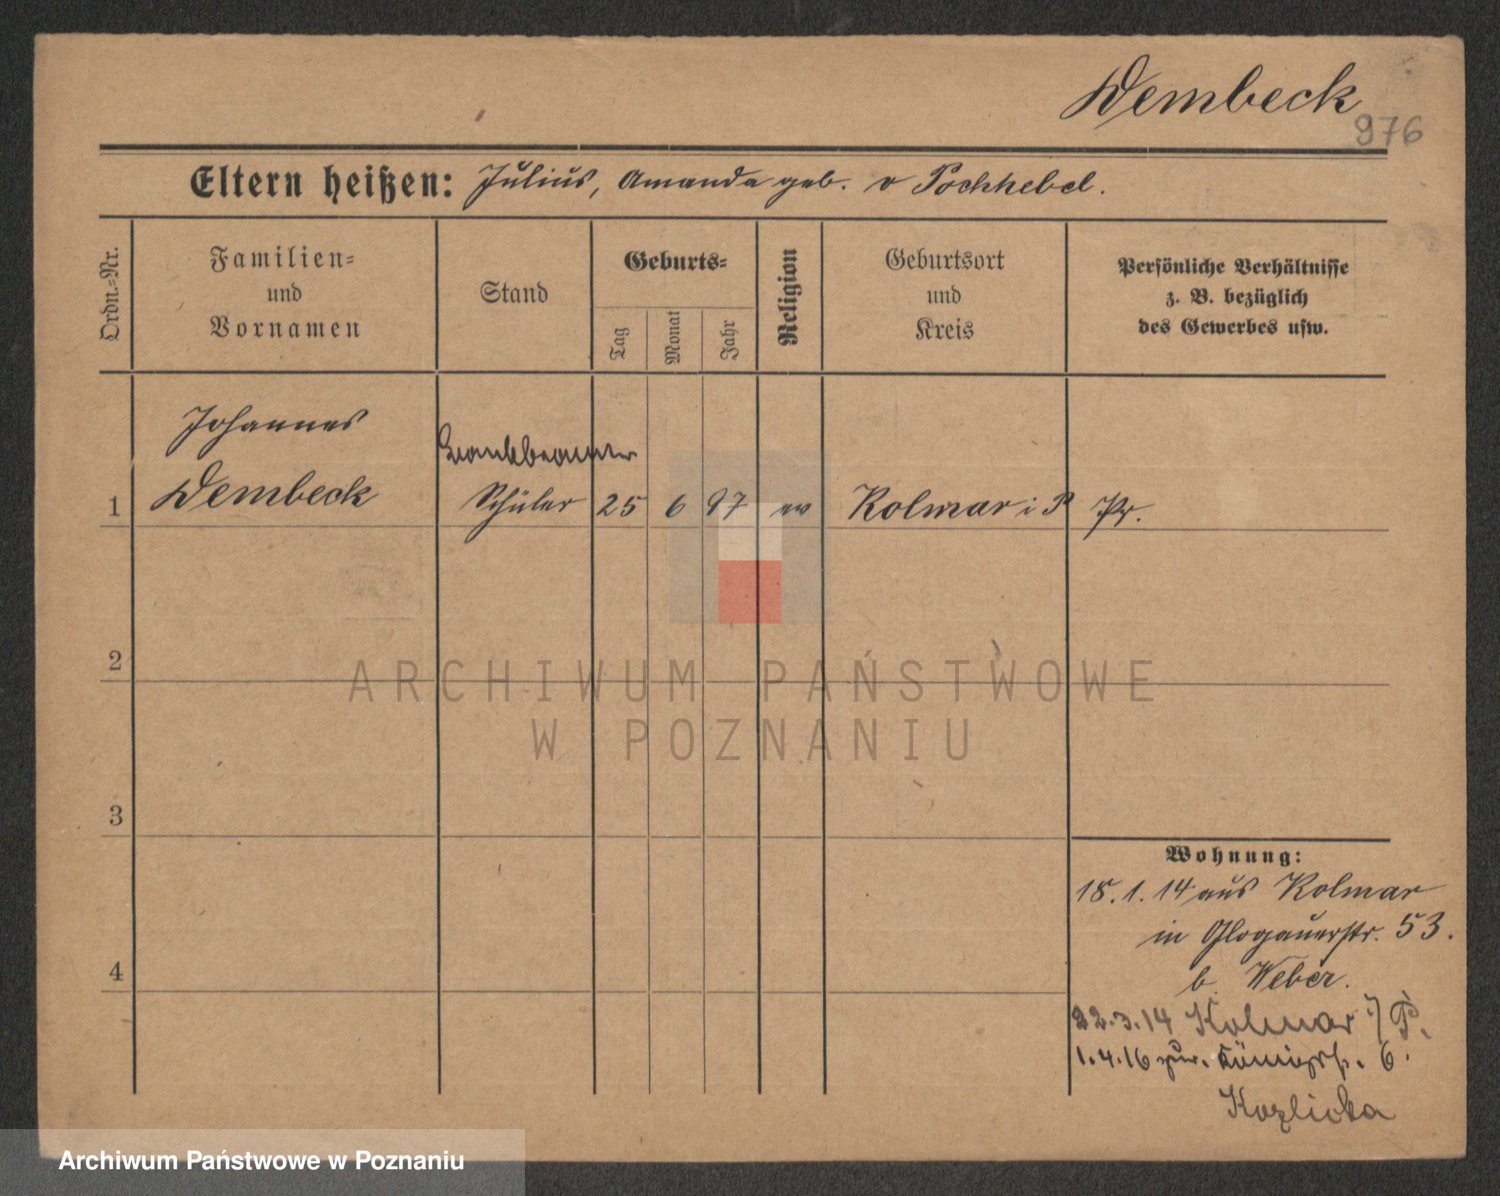 Dembeck
976
Eltern heißen: Julius, Amanda geb. v Pochhebel.
Ordn.=Nr.
Familien=
und
Vornamen
Stand
Geburts=
Tag
Monat
Jahr
Religion
Geburtsort
und
Kreis
Persönliche Verhältnisse
z. B. bezüglich
des Gewerbes usw.
Johannes
Bankbeamter
1 Dembeck Schüler 25 6 97 ev Kolmar i P Pr.
2
ARCHIWUM PAŃSTWOWE
W POZNANIU
3
Wohnung:
18.1.14 aus Kolmar
in Glogauerstr. 53.
4
b. Weber.
22.3.14 Kolmar i/P.
1.4.16 zur. Königspl. 6.
Kozlicka
Archiwum Państwowe w Poznaniu